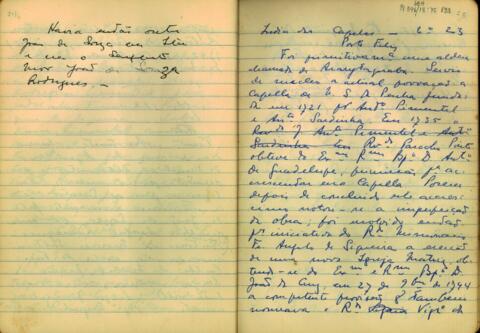 Havia então outro
João de Souza em Itú
e era o Sargento
Mor João de Souza
Rodrigues. —
Porto Feliz
Foi primitivamente uma aldeia
chamada de Araraytaguaba. Serviu
de nucleo a actual povoação a
Capella de N. S. da Penha funda-
da em 1721 pr Antº Pimentel
e Antº Sardinha. Em 1735 o
Revdo Pe Antº Pimentel e Antº
Sardinha
obteve do Exmo Rmo Bpº D. Antº
de Guadelupe, permissão pª ac
crescentar essa Capella. Porem
depois de concluido este acres-
cimo notou-se a imperfeição
da obra; foi resolvido então
pr iniciativa do Rdo Missionario
Fr. Angelo de Siqueira a erecção
de uma nova Igreja Matriz, ob
tendo-se do Exmo e Rmo Bpº D.
João da Cruz, em 27 de 9bro de 1744
a competente provisão q também
nomeava o Rdo Vigrº da